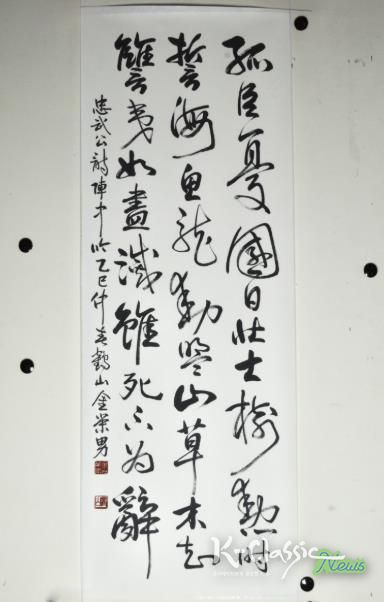 孤臣憂國日壯士樹勳時
誓海魚龍動盟山草木知
讐夷如盡滅雖死不为辭
忠武公詩陣中吟乙巳仲春鶴山金榮男
K-Classic News